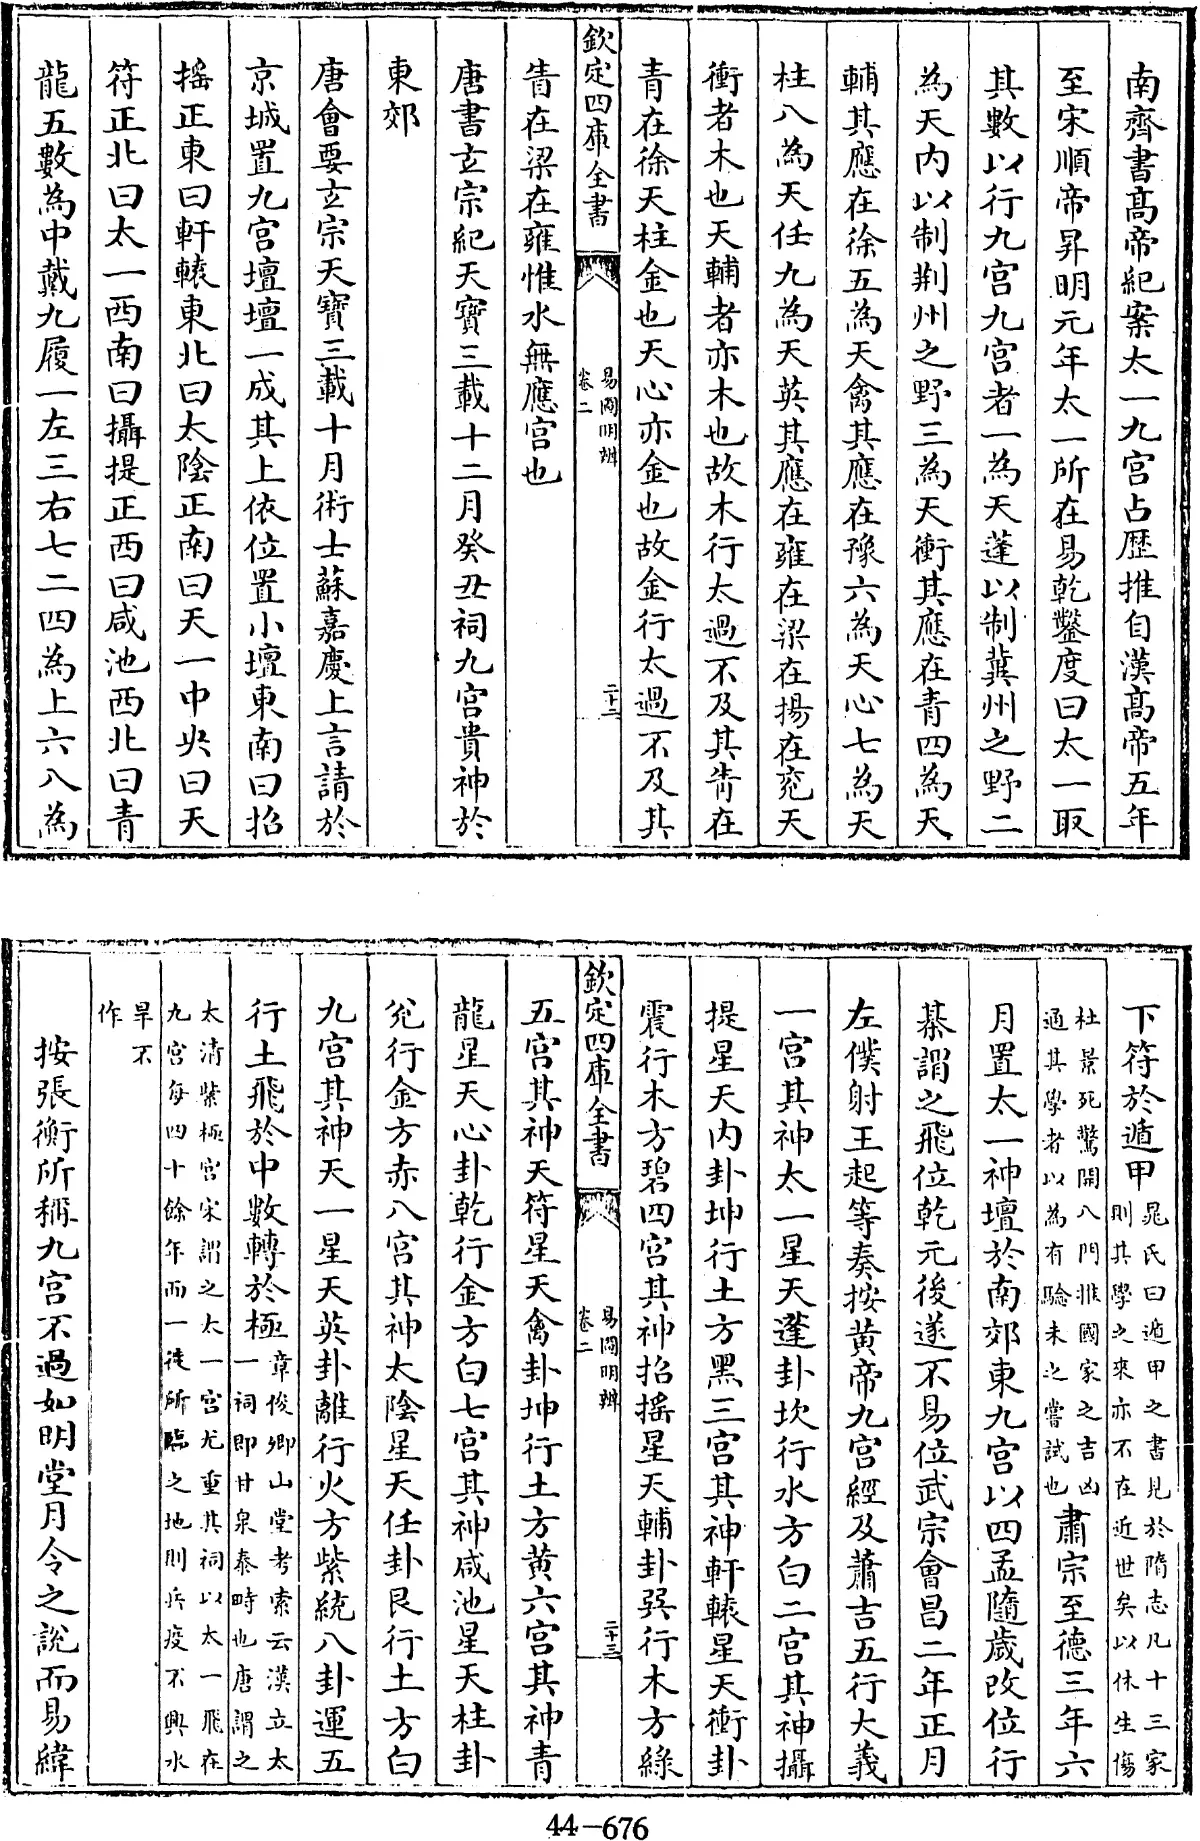 南齊書髙帝紀案太一九宫占歴推自漢髙帝五年
至宋順帝昇明元年太一所在易乾鑿度曰太一取
其數以行九宫九宫者一為天蓬以制冀州之野二
為天内以制荆州之野三為天衝其應在青四為天
輔其應在徐五為天禽其應在豫六為天心七為天
柱八為天任九為天英其應在雍在梁在揚在兖天
衝者木也天輔者亦木也故木行太過不及其眚在
青在徐天柱金也天心亦金也故金行太過不及其
欽定四庫全書
易圖明辨
卷二
二十二
眚在梁在雍惟水無應宫也
唐書玄宗紀天寶三載十二月癸丑祠九宫貴神於
東郊
唐會要玄宗天寶三載十月術士蘇嘉慶上言請於
京城置九宫壇壇一成其上依位置小壇東南曰招
摇正東曰軒轅東北曰太陰正南曰天一中央曰天
符正北曰太一西南曰攝提正西曰咸池西北曰青
龍五數為中戴九履一左三右七二四為上六八為
下符於遁甲
晁氏曰遁甲之書見於隋志凡十三家
則其學之來亦不在近世矣以休生傷
杜景死驚開八門推國家之吉凶
通其學者以為有驗未之嘗試也
肅宗至德三年六
月置太一神壇於南郊東九宫以四孟隨歲改位行
棊謂之飛位乾元後遂不易位武宗會昌二年正月
左僕射王起等奏按黄帝九宫經及蕭吉五行大義
一宫其神太一星天蓬卦坎行水方白二宫其神攝
提星天内卦坤行土方黑三宫其神軒轅星天衝卦
震行木方碧四宫其神招摇星天輔卦巽行木方綠
欽定四庫全書
易圖明辨
卷二
二十三
五宫其神天符星天禽卦坤行土方黄六宫其神青
龍星天心卦乾行金方白七宫其神咸池星天柱卦
兊行金方赤八宫其神太陰星天任卦艮行土方白
九宫其神天一星天英卦離行火方紫統八卦運五
行土飛於中數轉於極
章俊卿山堂考索云漢立太
一祠即甘泉泰畤也唐謂之
太清紫極宫宋謂之太一宫尤重其祠以太一飛在
九宫每四十餘年而一徙所臨之地則兵疫不興水
旱不
作
按張衡所稱九宫不過如明堂月令之説而易緯
44-676